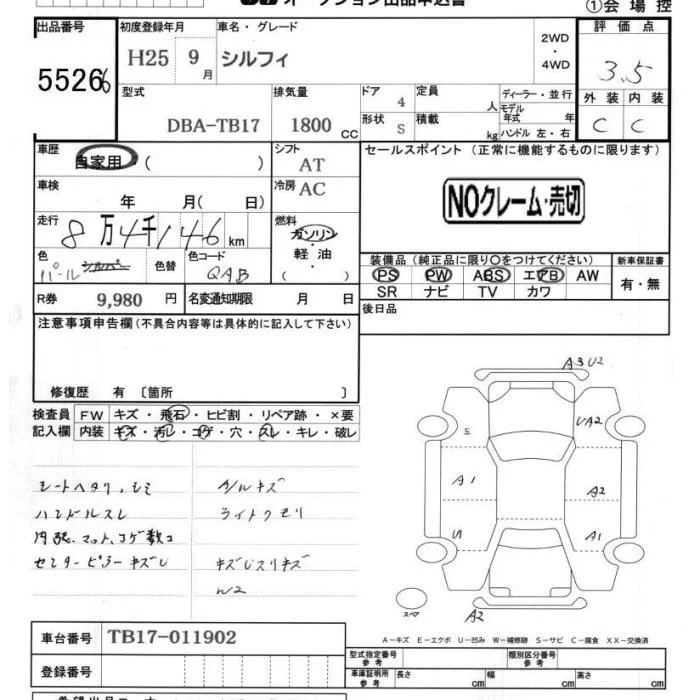 オークション出品申込書
①会場控
出品番号 初度登録年月 車名・グレード 評価点
55266 H25 9月 シルフィ 2WD・4WD 3.5
型式 排気量 ドア 定員 ディーラー・並行 外装 内装
DBA-TB17 1800 CC 4 人 モデル年式 年 C C
形状 S 積載 kg ハンドル 左・右
車歴 自家用 ( ) シフト AT セールスポイント (正常に機能するものに限ります)
車検 年 月( 日) 冷房 AC NOクレーム・売切
走行 8万4千146km 燃料 ガソリン・軽油・( )
色 パール シルバー 色替 色コード QAB
装備品 (純正品に限り○をつけてください) 新車保証書
PS PW ABS エアB AW 有・無
SR ナビ TV カワ
R券 9,980円 名変通知期限 月 日 後日品
注意事項申告欄(不具合内容等は具体的に記入して下さい)
修復歴 有 〔箇所 〕
検査員 FW キズ・飛石・ヒビ割・リペア跡・×要
記入欄 内装 キズ・汚レ・コゲ・穴・スレ・キレ・破レ
シートヘタリ、シミ
ハンドルスレ
センターピラーキズU
ライトクモリ
W2
A3 U2
UA2
A1
A2
A1
A2
スペア
A－キズ E－エクボ U－凹み W－補修跡 S－サビ C－腐食 XX－交換済
車台番号 TB17-011902
登録番号
型式指定番号 参考 類別区分番号 参考
車庫証明用 参考 長さ cm 幅 cm 高さ cm